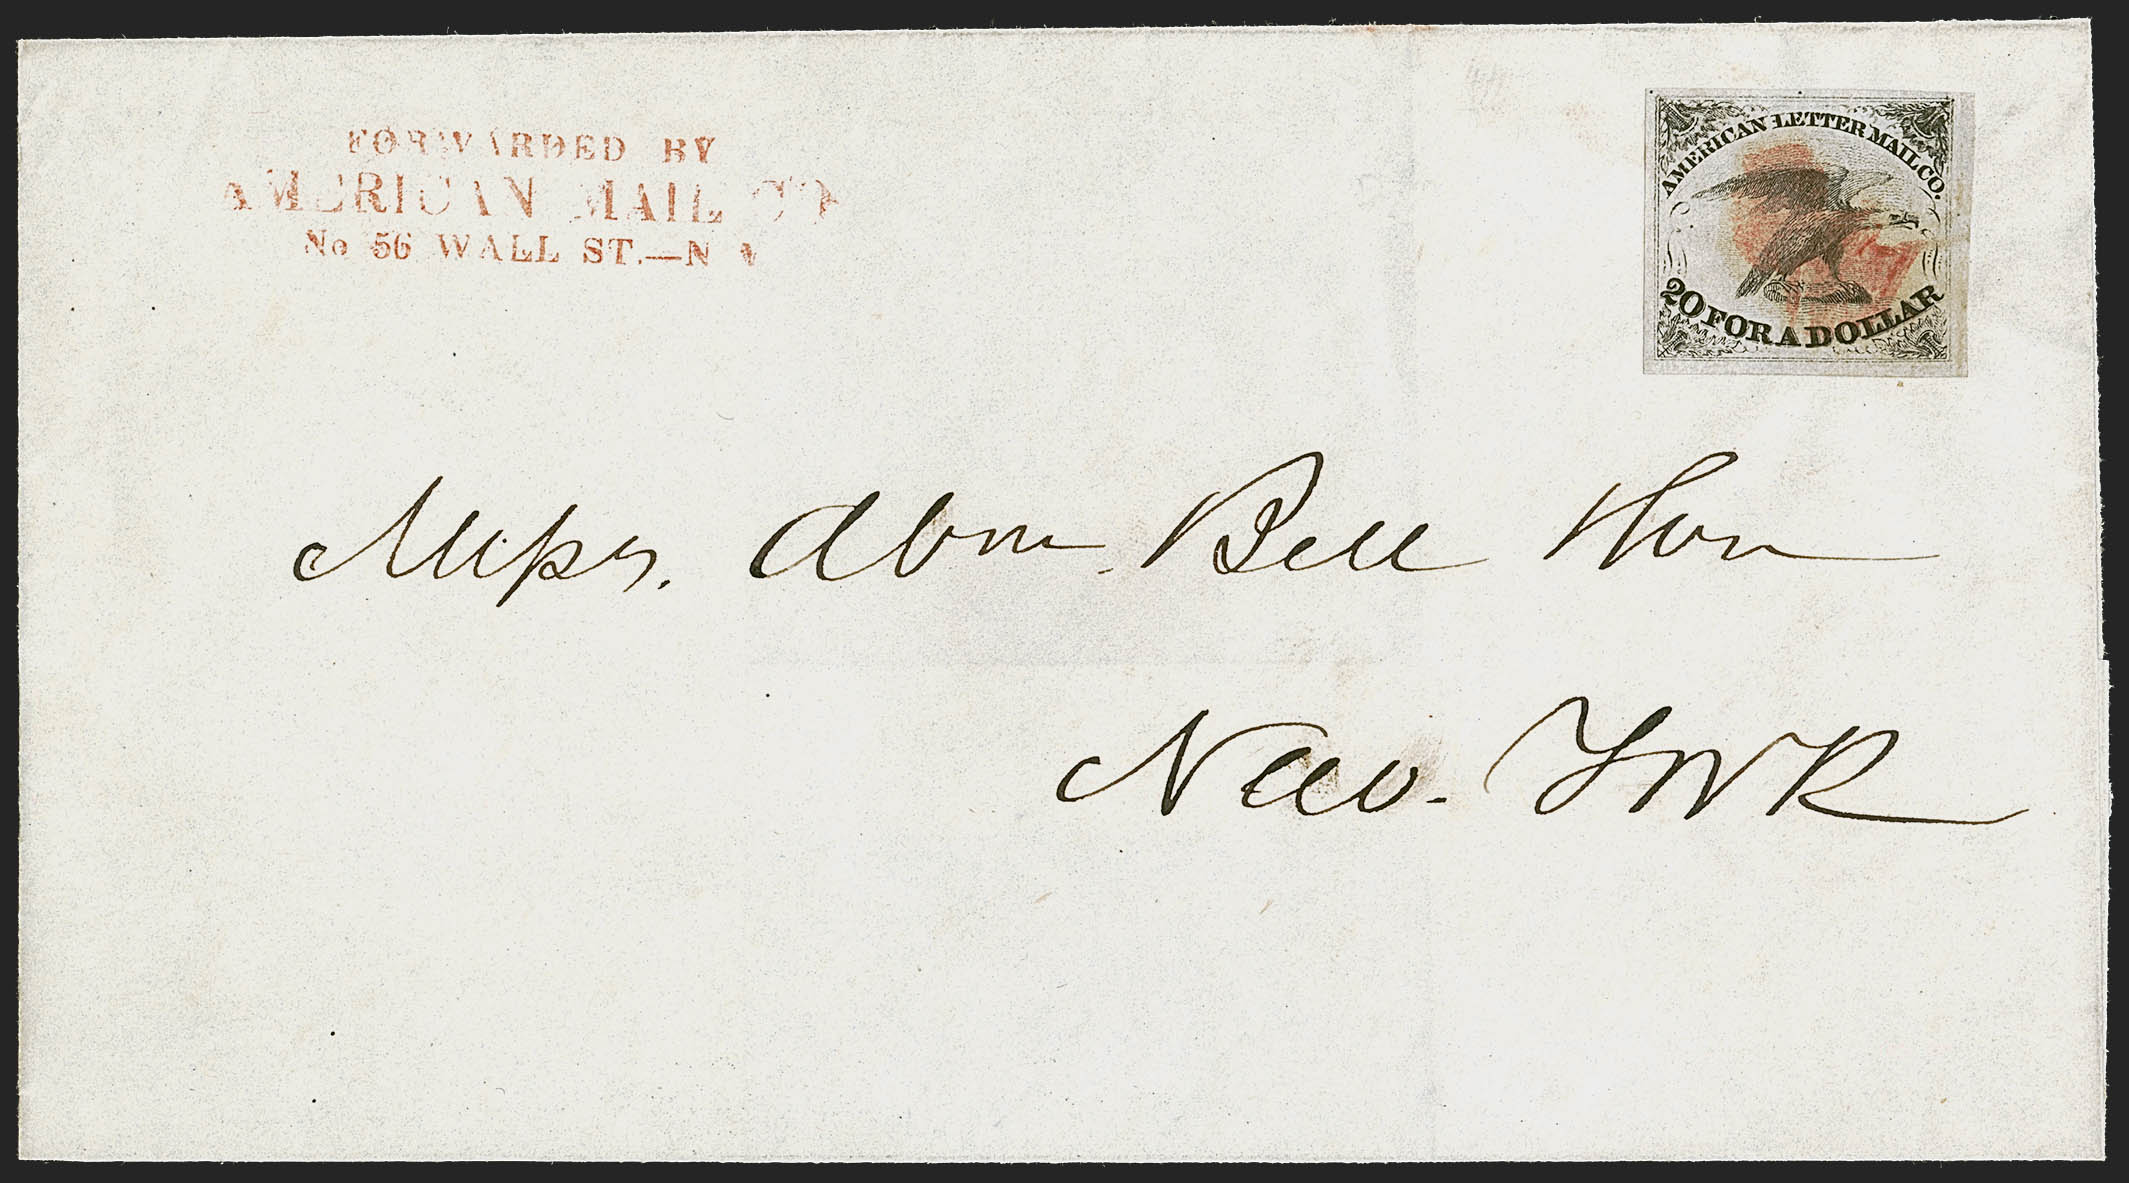 FORWARDED BY
AMERICAN MAIL CO
No 56 WALL ST.—N Y
AMERICAN LETTER MAIL CO.
20 FOR A DOLLAR
Messrs. Abm. Bell
New. York